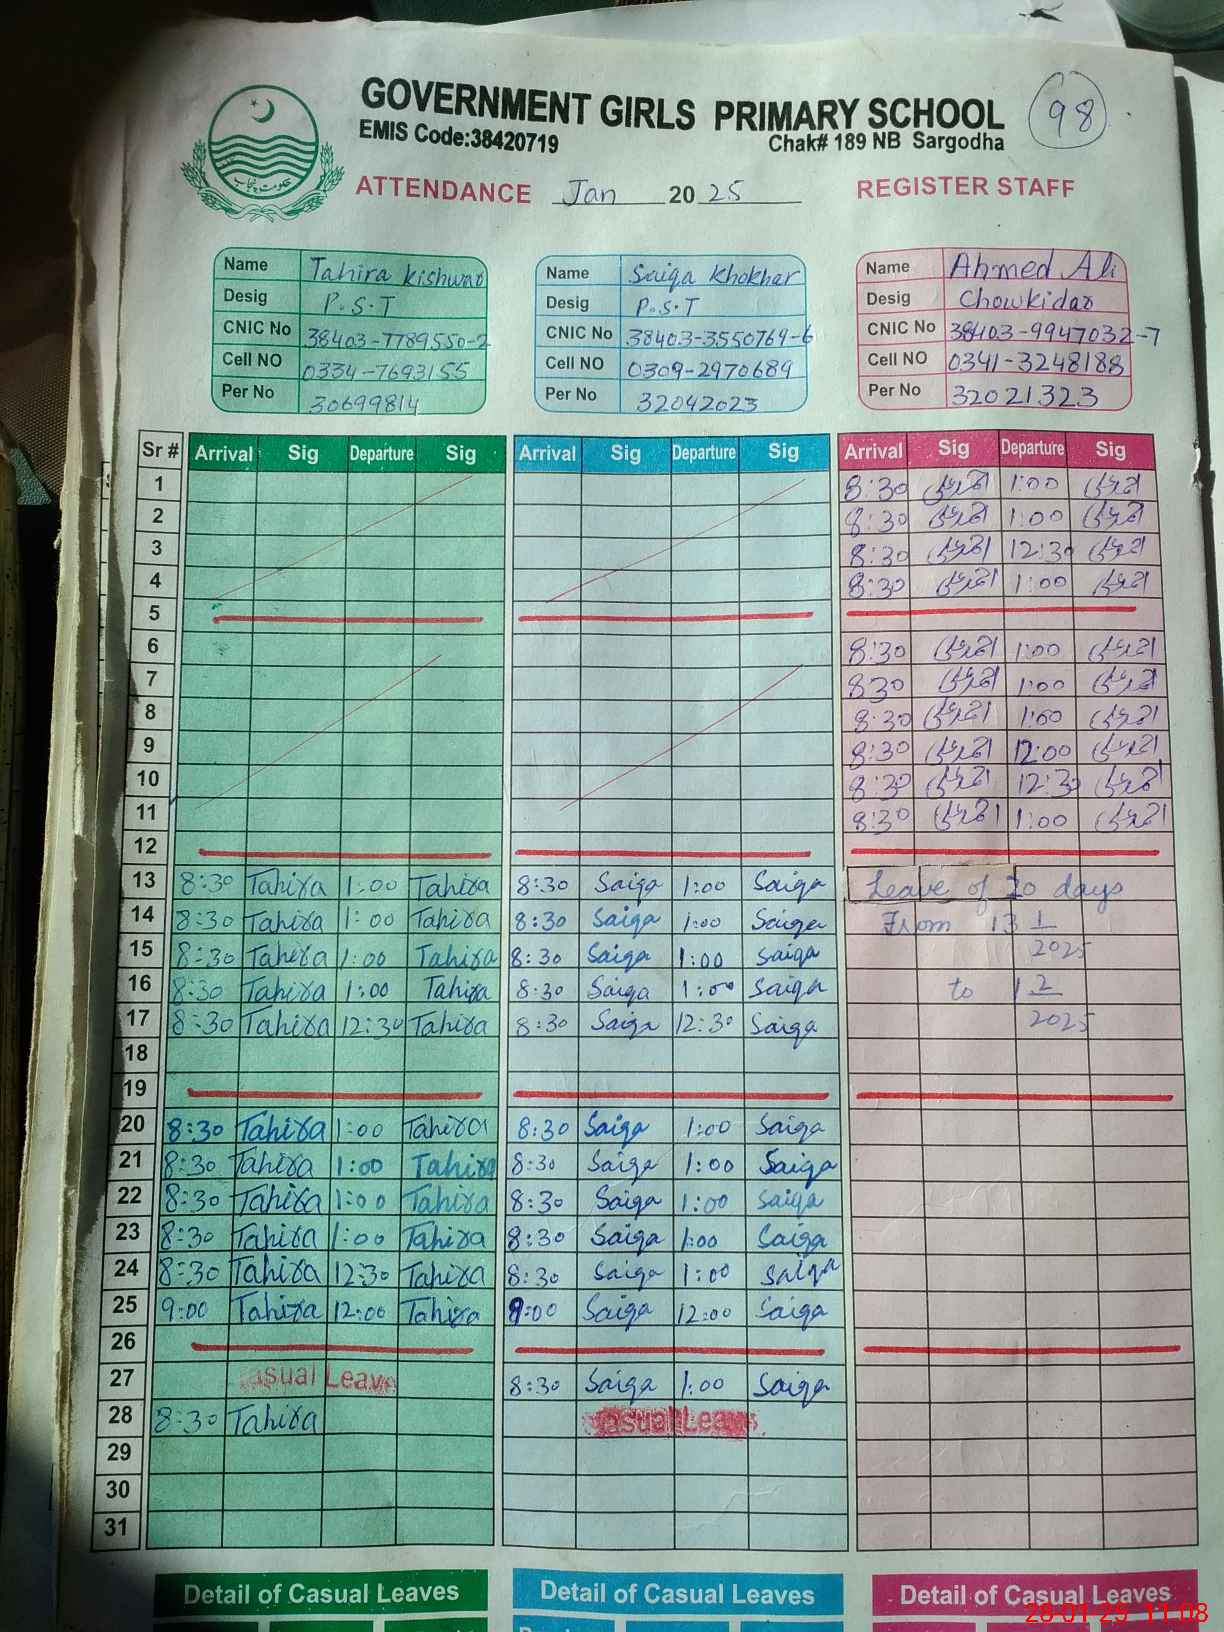 GOVERNMENT GIRLS PRIMARY SCHOOL
98
EMIS Code:38420719
Chak# 189 NB Sargodha
حکومت پنجاب
ATTENDANCE Jan 20 25 REGISTER STAFF
Name Tahira Kishwar Name Saiqa Khokhar Name Ahmed Ali
Desig P.S.T Desig P.S.T Desig Chowkidar
CNIC No 38403-7789550-2 CNIC No 38403-3550769-6 CNIC No 38403-9947032-7
Cell NO 0334-7693155 Cell NO 0309-2970689 Cell NO 0341-3248188
Per No 30699814 Per No 32042023 Per No 32021323
Sr # Arrival Sig Departure Sig Arrival Sig Departure Sig Arrival Sig Departure Sig
1 8:30 1:00
2 8:30 1:00
3 8:30 12:30
4 8:30 1:00
5
6 8:30 1:00
7 830 1:00
8 8:30 1:00
9 8:30 12:00
10 8:30 12:30
11 8:30 1:00
12
13 8:30 Tahira 1:00 Tahira 8:30 Saiqa 1:00 Saiqa Leave of 20 days
14 8:30 Tahira 1:00 Tahira 8:30 Saiqa 1:00 Saiqa From 13 1
15 8:30 Tahira 1:00 Tahira 8:30 Saiqa 1:00 Saiqa 2025
16 8:30 Tahira 1:00 Tahira 8:30 Saiqa 1:00 Saiqa to 1 2
17 8:30 Tahira 12:30 Tahira 8:30 Saiqa 12:30 Saiqa 2025
18
19
20 8:30 Tahira 1:00 Tahira 8:30 Saiqa 1:00 Saiqa
21 8:30 Tahira 1:00 Tahira 8:30 Saiqa 1:00 Saiqa
22 8:30 Tahira 1:00 Tahira 8:30 Saiqa 1:00 Saiqa
23 8:30 Tahira 1:00 Tahira 8:30 Saiqa 1:00 Saiqa
24 8:30 Tahira 12:30 Tahira 8:30 Saiqa 1:00 Saiqa
25 9:00 Tahira 12:00 Tahira 9:00 Saiqa 12:00 Saiqa
26
27 Casual Leave 8:30 Saiqa 1:00 Saiqa
28 8:30 Tahira Casual Leave
29
30
31
Detail of Casual Leaves Detail of Casual Leaves Detail of Casual Leaves
28-01-25 11:08